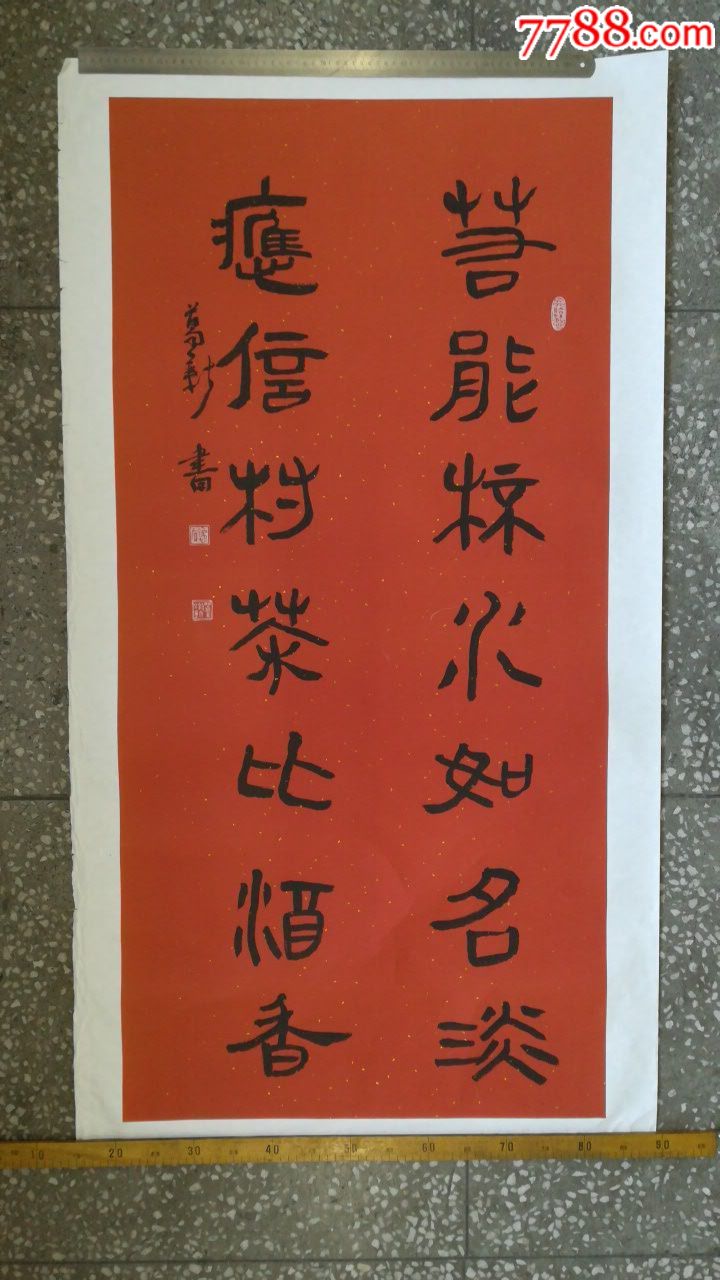 7788.com
若能杯水如名淡
應信村茶比酒香
葛 書
10 20 30 40 50 60 70 80 90